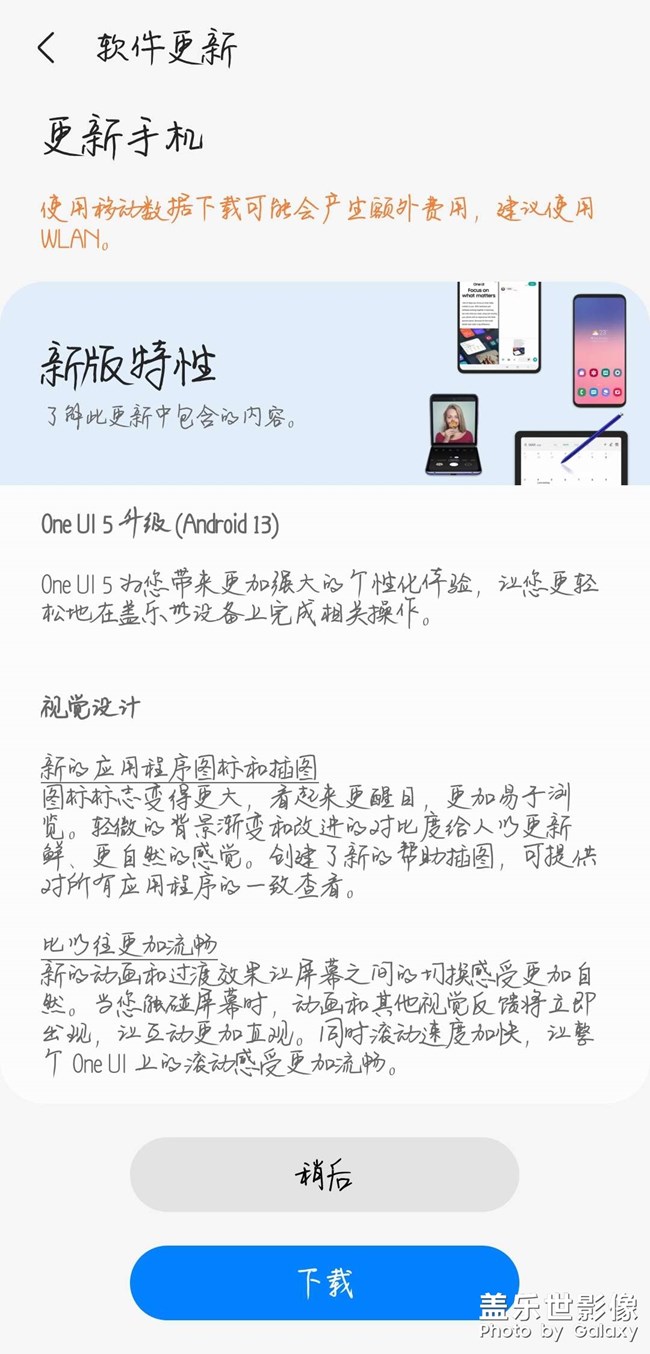 软件更新
更新手机
使用移动数据下载可能会产生额外费用，建议使用
WLAN。
One UI
Focus on
what matters
新版特性
了解此更新中包含的内容。
One UI 5 升级 (Android 13)
One UI 5 为您带来更加强大的个性化体验，让您更轻
松地在盖乐世设备上完成相关操作。
视觉设计
新的应用程序图标和插图
图标标志变得更大，看起来更醒目，更加易于浏
览。轻微的背景渐变和改进的对比度给人以更新
鲜、更自然的感觉。创建了新的帮助插图，可提供
对所有应用程序的一致查看。
比以往更加流畅
新的动画和过渡效果让屏幕之间的切换感受更加自
然。当您触碰屏幕时，动画和其他视觉反馈将立即
出现，让互动更加直观。同时滚动速度加快，让整
个 One UI 上的滚动感受更加流畅。
稍后
下载
盖乐世影像
Photo by Galaxy